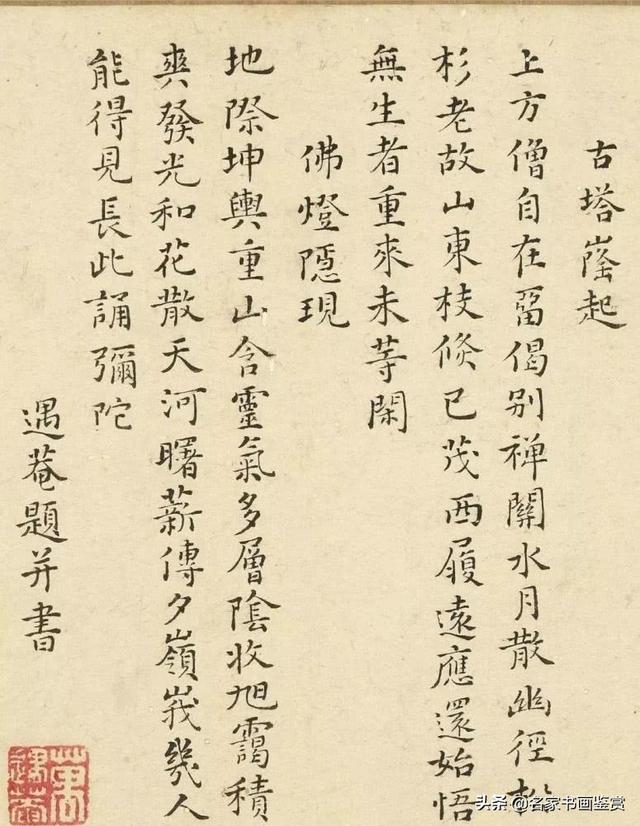 古塔嶐起
上方僧自在畱偈别禅關水月散幽徑松
杉老故山東枝倐已茂西履遠應還始悟
無生者重來未等閑
佛燈隱現
地際坤輿重山含靈氣多層陰收旭靄積
爽發光和花散天河曙薪傳夕嶺峩幾人
能得見長此誦彌陀
遇菴題并書
头条 @名家书画鉴赏